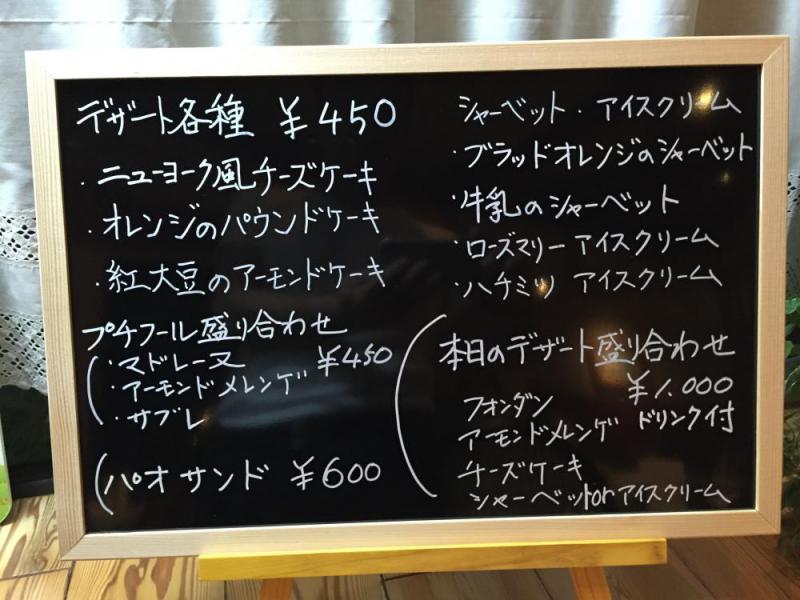 デザート各種 ¥450
・ニューヨーク風チーズケーキ
・オレンジのパウンドケーキ
・紅大豆のアーモンドケーキ
プチフール盛り合わせ
・マドレーヌ ¥450
・アーモンドメレンゲ
・サブレ
パオサンド ¥600
シャーベット・アイスクリーム
・ブラッドオレンジのシャーベット
・牛乳のシャーベット
・ローズマリーアイスクリーム
・ハチミツ アイスクリーム
本日のデザート盛り合わせ
¥1.000
フォンダン ドリンク付
アーモンドメレンゲ
チーズケーキ
シャーベットorアイスクリーム